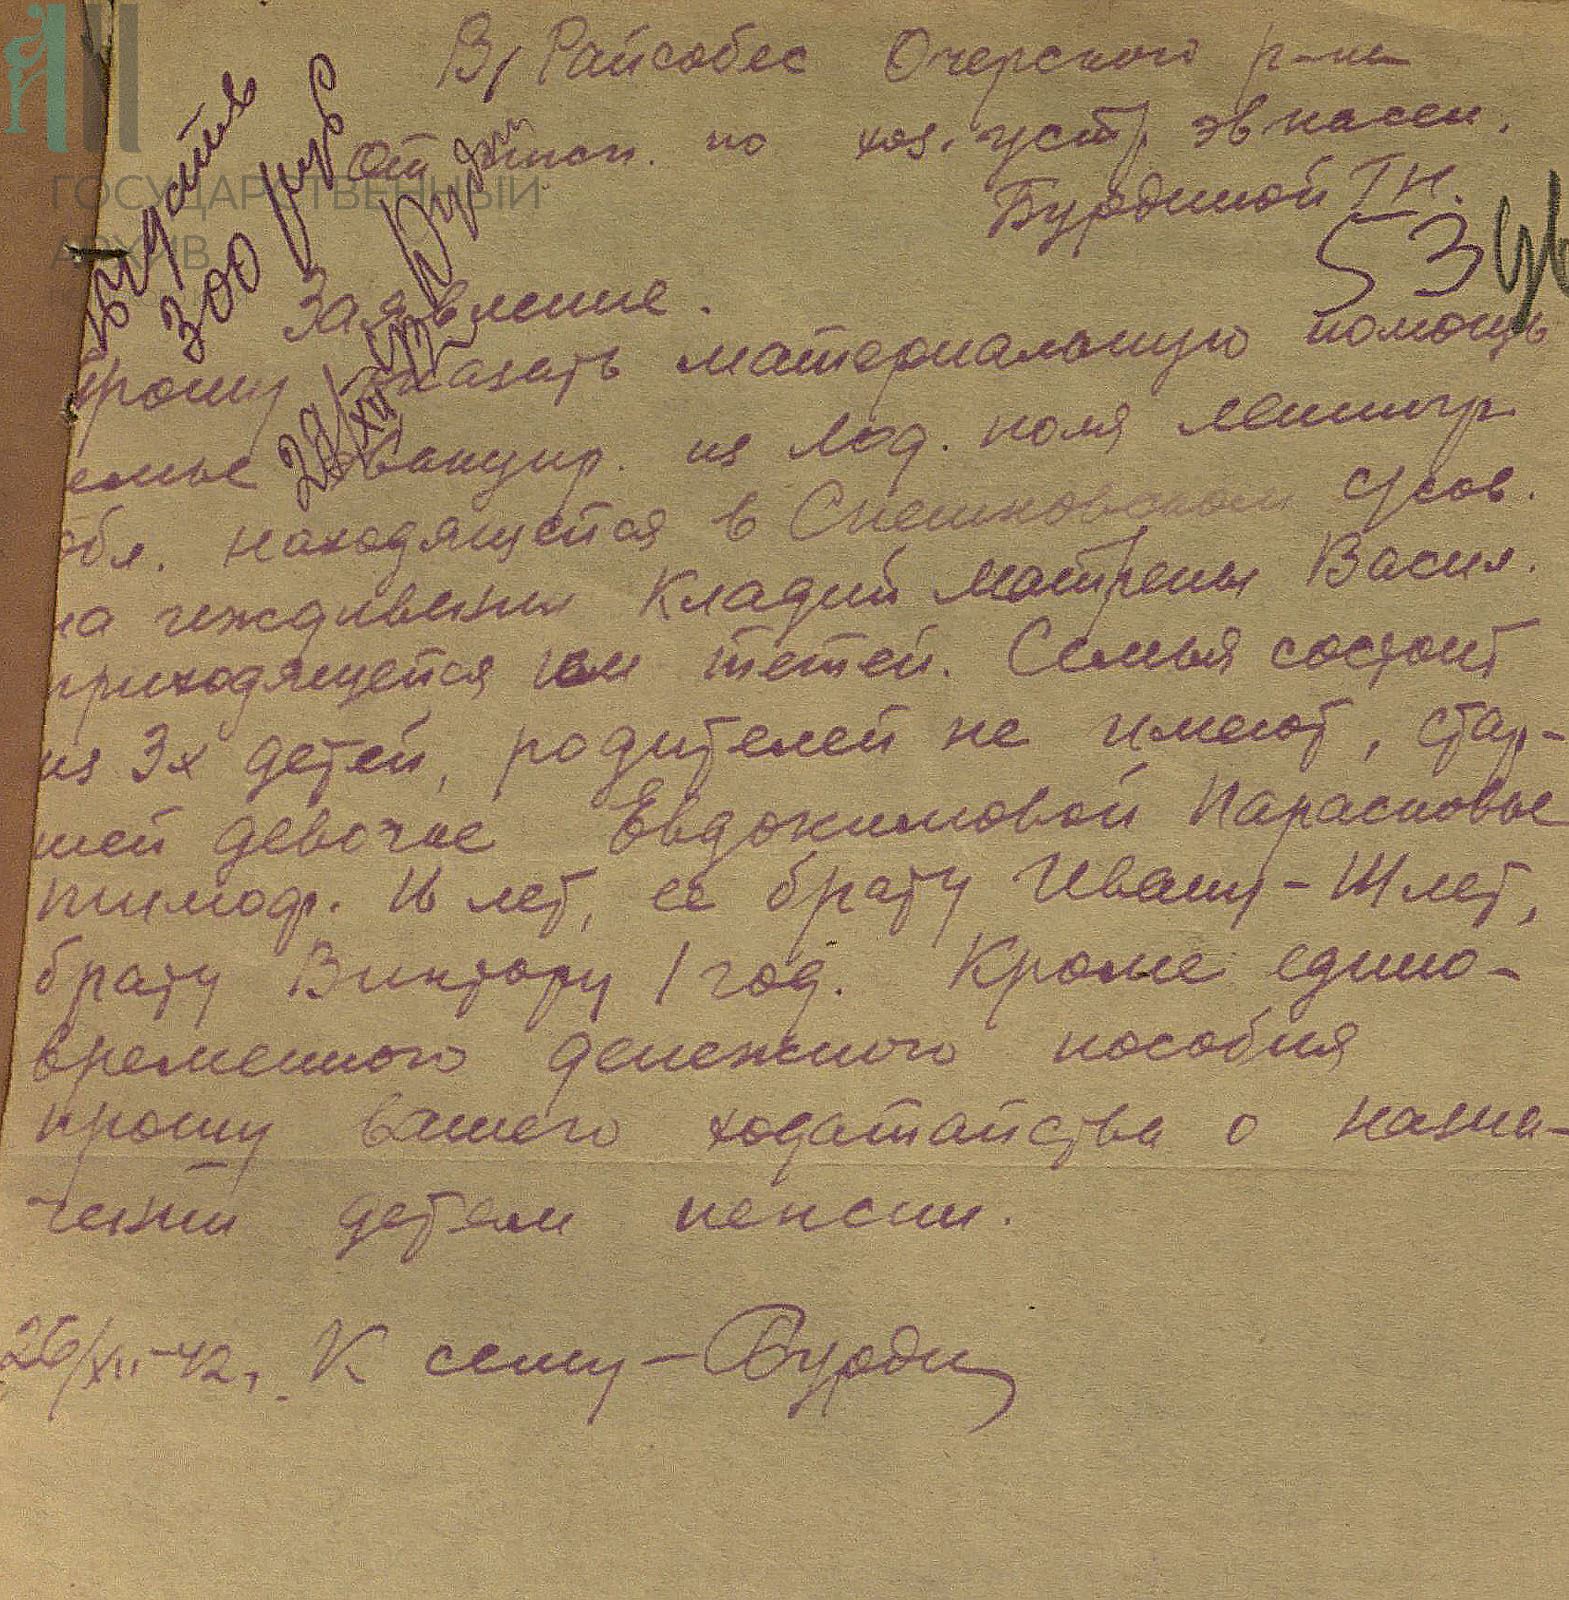 В Райсобес Очерского р-на
От инсп. по хоз. устр. эв насел.
Бурдиной Т Н.
53
выдать
300 руб
29/XII 42
Заявление.
прошу оказать материальную помощь
семье эвакуир. из Лод. поля Ленингр
обл. находящейся в Спешковском с/сов.
на иждивении Кладий Матрены Васил.
приходящейся им тетей. Семья состоит
из 3х детей, родителей не имеют, стар-
шей девочке Евдокимовой Парасковье
тимоф. 16 лет, ее брату Ивану - 14 лет,
брату Виктору 1 год. Кроме едино-
временного денежного пособия
прошу вашего ходатайства о назна-
чении детям пенсии.
26/XII-42 г. К сему - Бурдин
ГОСУДАРСТВЕННЫЙ
АРХИВ